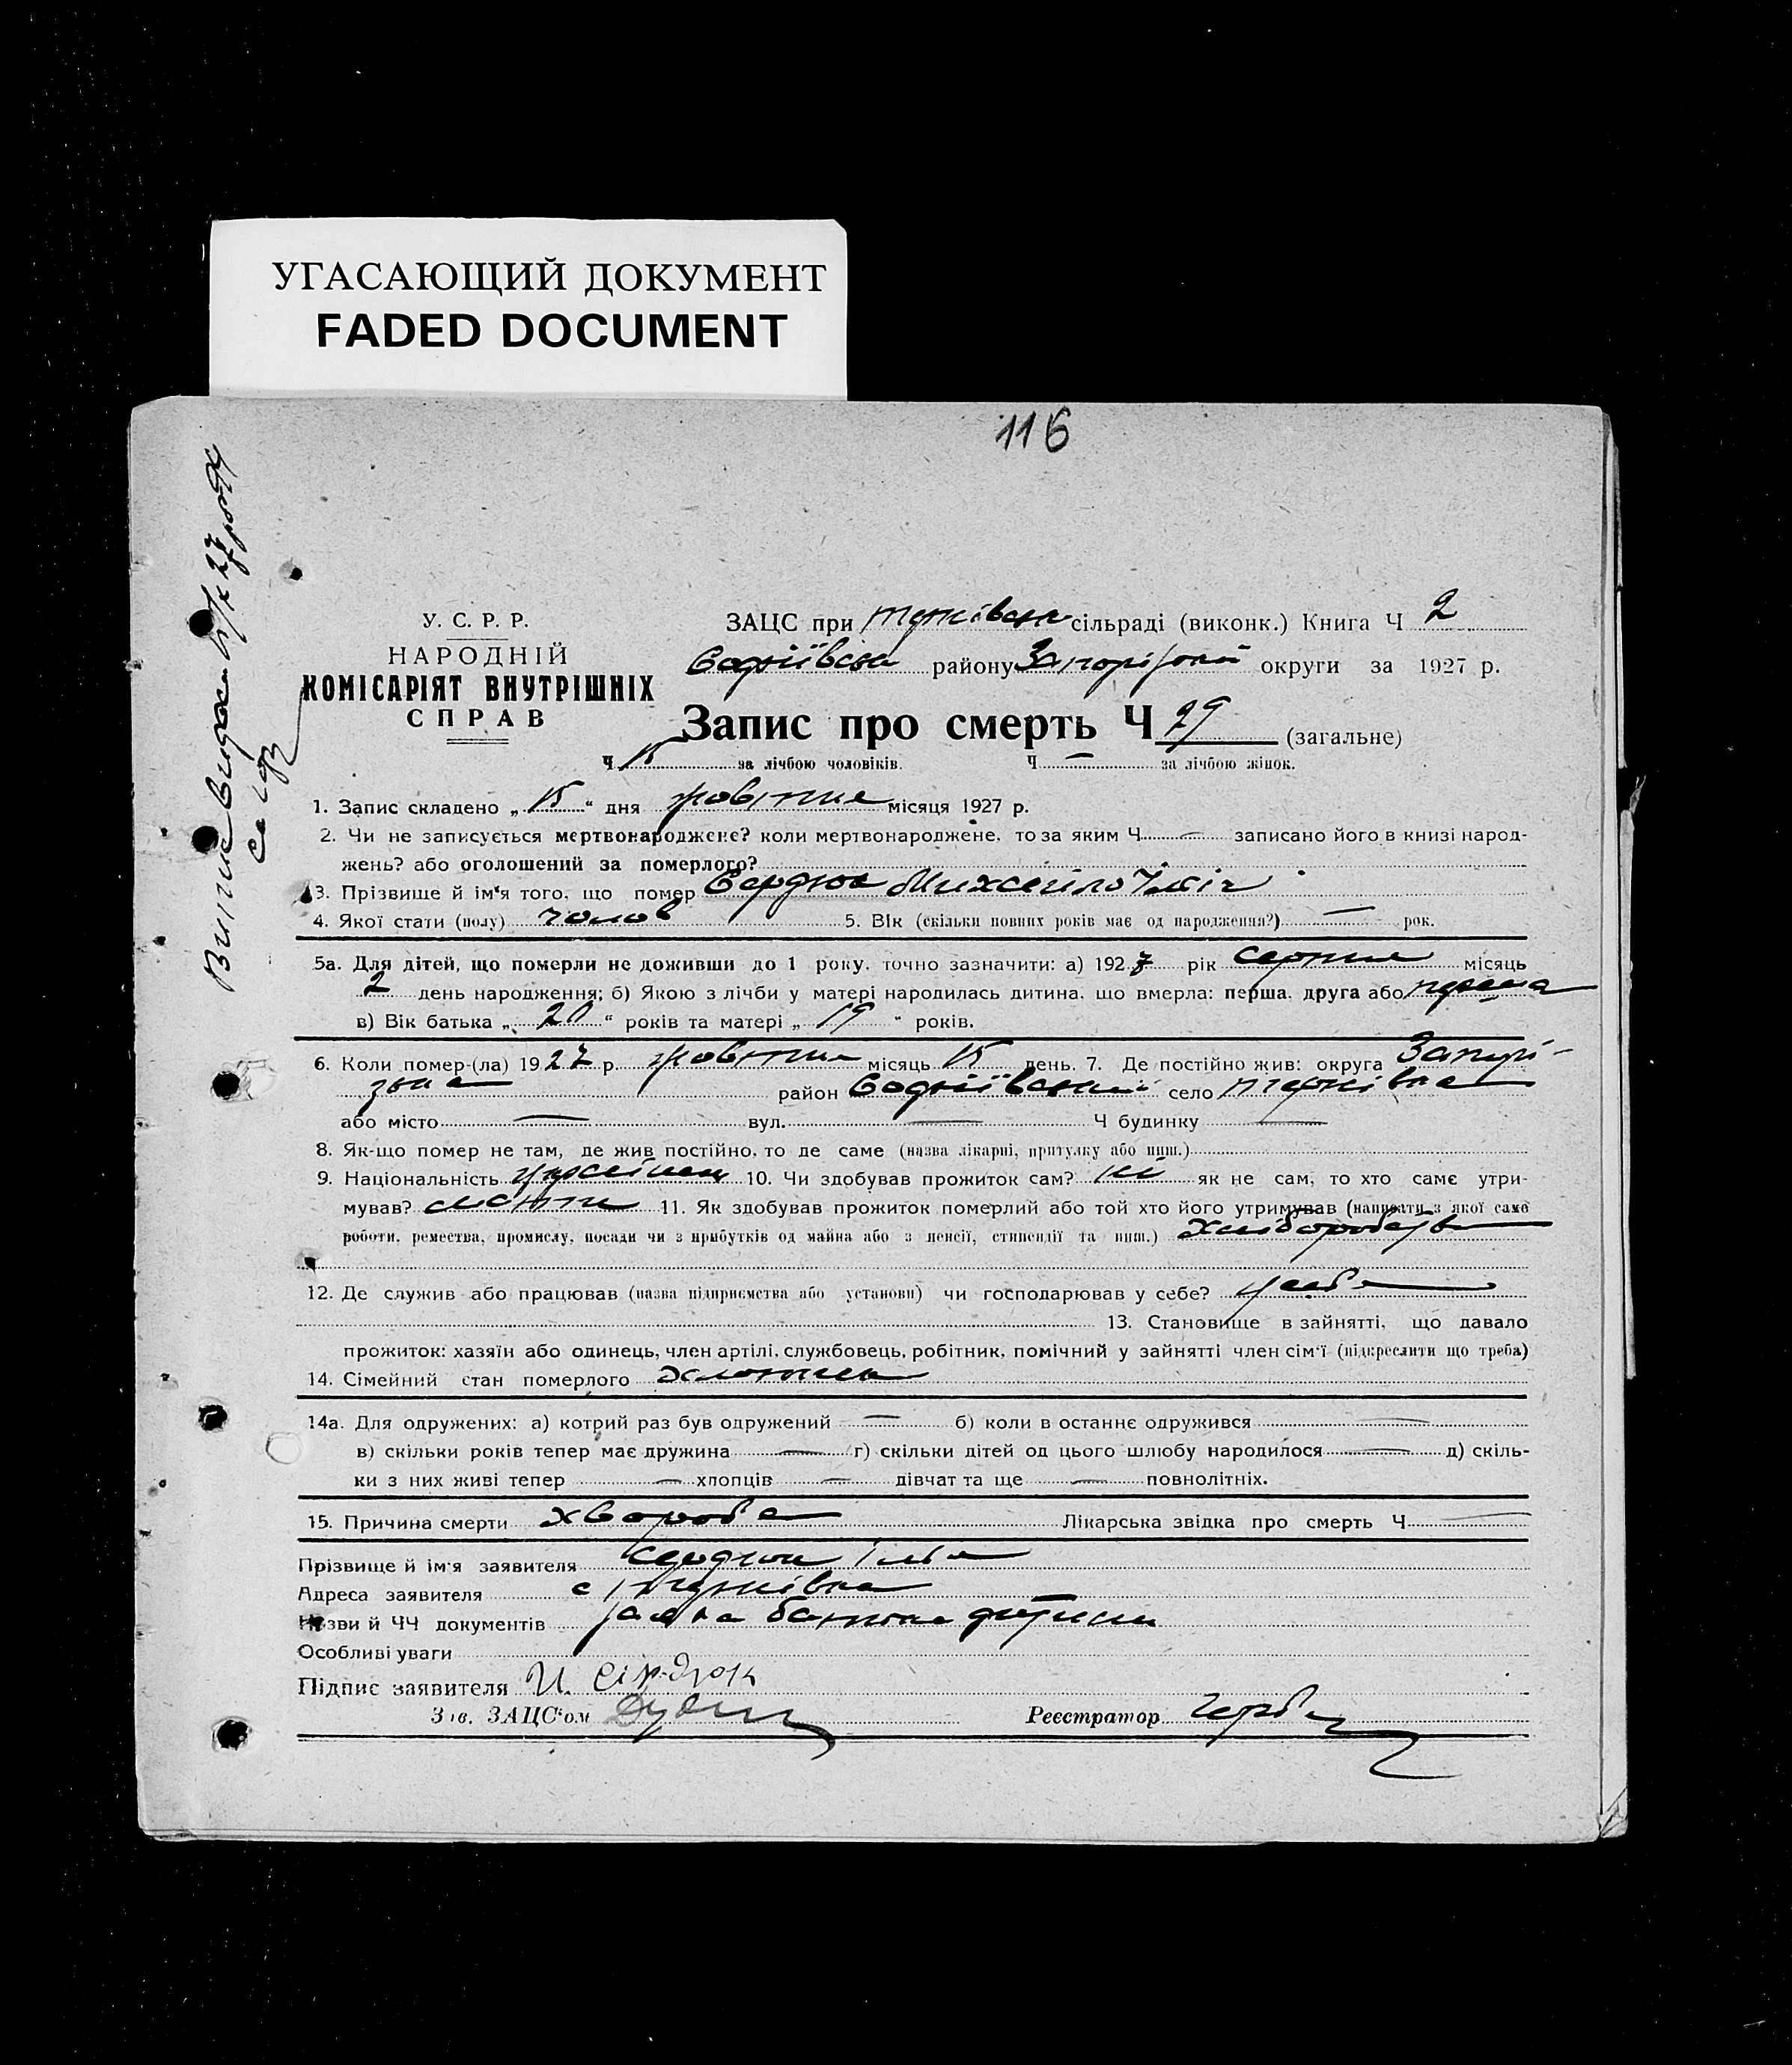 УГАСАЮЩИЙ ДОКУМЕНТ
FADED DOCUMENT
116
У. С. Р. Р.
НАРОДНІЙ
КОМІСАРІЯТ ВНУТРІШНІХ
СПРАВ
ЗАЦС при сільраді (виконк.) Книга Ч 2
Софіївська району Запорізької округи за 1927 р.
Запис про смерть Ч 29 (загальне)
Ч 15 за лічбою чоловіків. Ч — за лічбою жінок.
1. Запис складено „ 15 “ дня жовтня місяця 1927 р.
2. Чи не записується мертвонароджене? коли мертвонароджене, то за яким Ч — записано його в книзі народ-
жень? або оголошений за померлого?
3. Прізвище й ім'я того, що помер Сердюк Михайло Ілліч
4. Якої стати (полу) чолов 5. Вік (скільки повних років має од народження?) — рок.
5а. Для дітей, що померли не доживши до 1 року, точно зазначити: а) 1927 рік серпня місяць
2 день народження; б) Якою з лічби у матері народилась дитина, що вмерла: перша, друга або перша
в) Вік батька „ 20 “ років та матері „ 19 “ років.
6. Коли помер-(ла) 1927 р. жовтня місяць 15 день. 7. Де постійно жив: округа Запорі-
зька район Софіївський село
або місто — вул. — Ч будинку —
8. Як-що помер не там, де жив постійно, то де саме (назва лікарні, притулку або инш.)
9. Національність українец 10. Чи здобував прожиток сам? ні як не сам, то хто саме утри-
мував? мати 11. Як здобував прожиток померлий або той хто його утримував (написати з якої саме
роботи, ремества, промислу, посади чи з прибутків од майна або з пенсії, стипендії та инш.) хліборобств
12. Де служив або працював (назва підприємства або установи) чи господарював у себе? у себе
13. Становище в зайнятті, що давало
прожиток: хазяїн або одинець, член артілі, службовець, робітник, помічний у зайнятті член сім'ї (підкреслити що треба)
14. Сімейний стан померлого хлопець
14а. Для одружених: а) котрий раз був одружений — б) коли в останнє одружився —
в) скільки років тепер має дружина — г) скільки дітей од цього шлюбу народилося — д) скіль-
ки з них живі тепер — хлопців — дівчат та ще — повнолітніх.
15. Причина смерти хвороба Лікарська звідка про смерть Ч —
Прізвище й ім'я заявителя Сердюк Ілья
Адреса заявителя с
Назви й ЧЧ документів заява батька дитини
Особливі уваги
Підпис заявителя И. Сірдюк
Зав. ЗАЦС'ом
Реєстратор